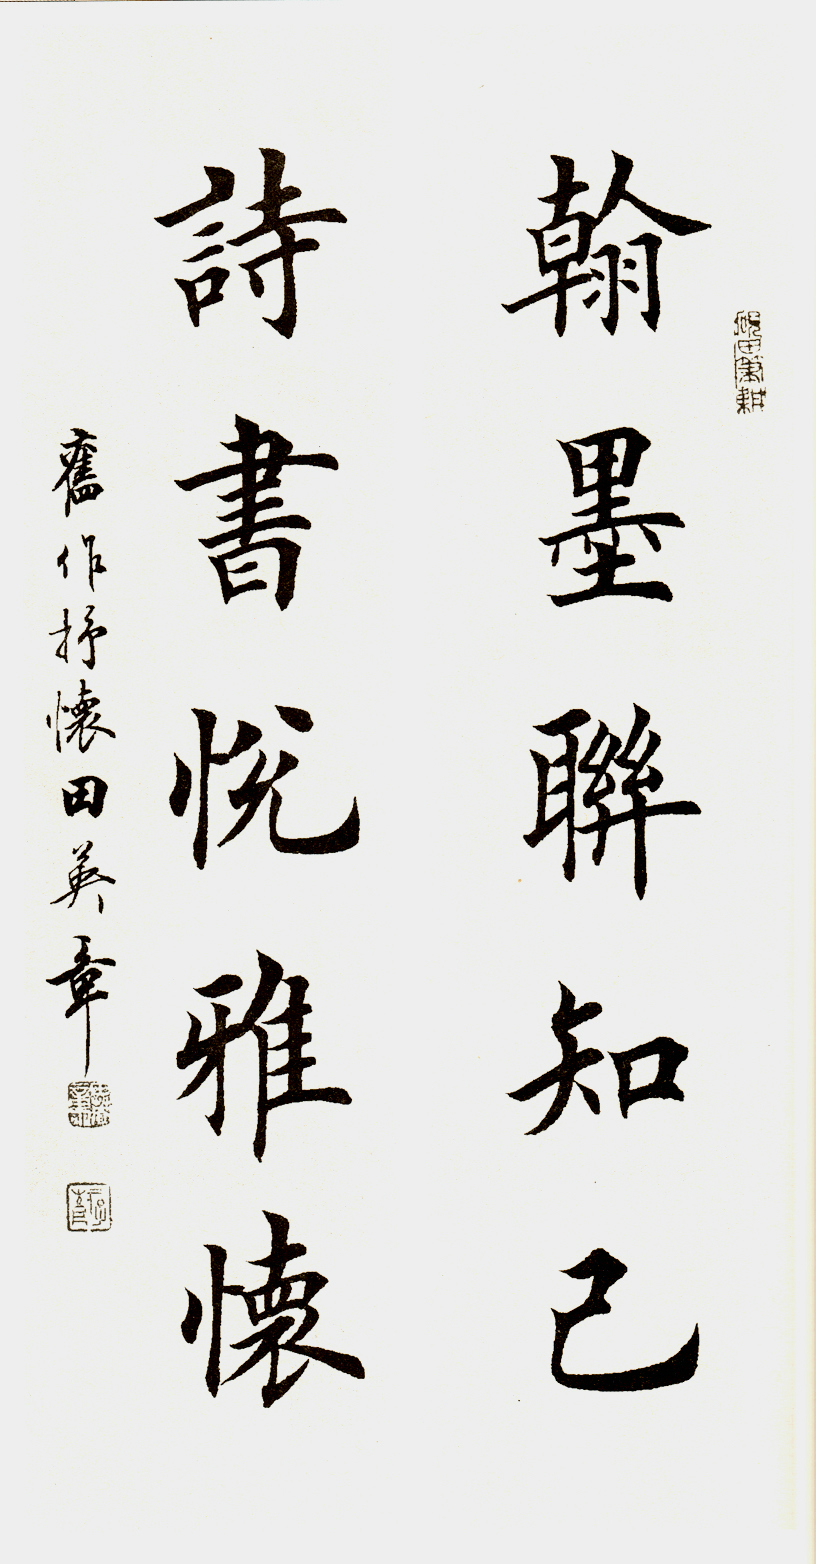 翰墨聯知己
詩書悅雅懷
舊作抒懷田英章